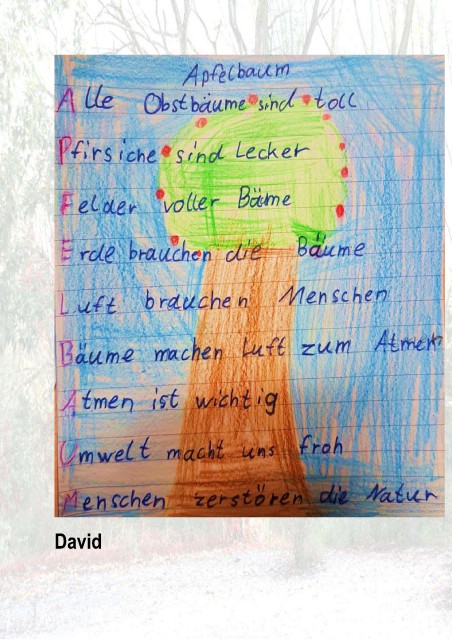 Apfelbaum
Alle Obstbäume sind toll
Pfirsiche sind Lecker
Felder voller Bäme
Erde brauchen die Bäume
Luft brauchen Menschen
Bäume machen Luft zum Atmen
Atmen ist wichtig
Umwelt macht uns froh
Menschen zerstören die Natur
David